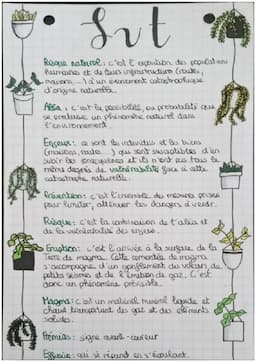 Svt
Risque naturel : c'est l'exposition des populations
humaines et de leurs infrastructure (routes,
maisons,...) à un évènement catastrophique
d'origine naturelle.
Aléa : c'est la possibilité, ou probabilité que
se produise un phénomène naturel dans
l'environnement.
Enjeux : ce sont les individus et les biens
(maisons, routes...) qui sont susceptibles d'en
subir les conséquences et ils n'ont pas tous le
même degrés de vulnérabilité face à cette
catastrophe naturelle.
Prévention : c'est l'ensemble des mesures prises
pour limiter, atténuer les dangers à venir.
Risque : c'est la combinaison de l'aléa et de
la vulnérabilité des enjeux.
Eruption : c'est l'arrivée à la surface de la
Terre de magma. Cette remontée de magma
s'accompagne d'un gonflement du volcan, de
petits séismes et de l'émission de gaz. C'est
donc un phénomène prévisible.
Magma : c'est un matériel minéral liquide et
chaud transportant des gaz et des éléments
solides.
: signe avant-coureur
Effusive : qui se répand en s'écoulant.